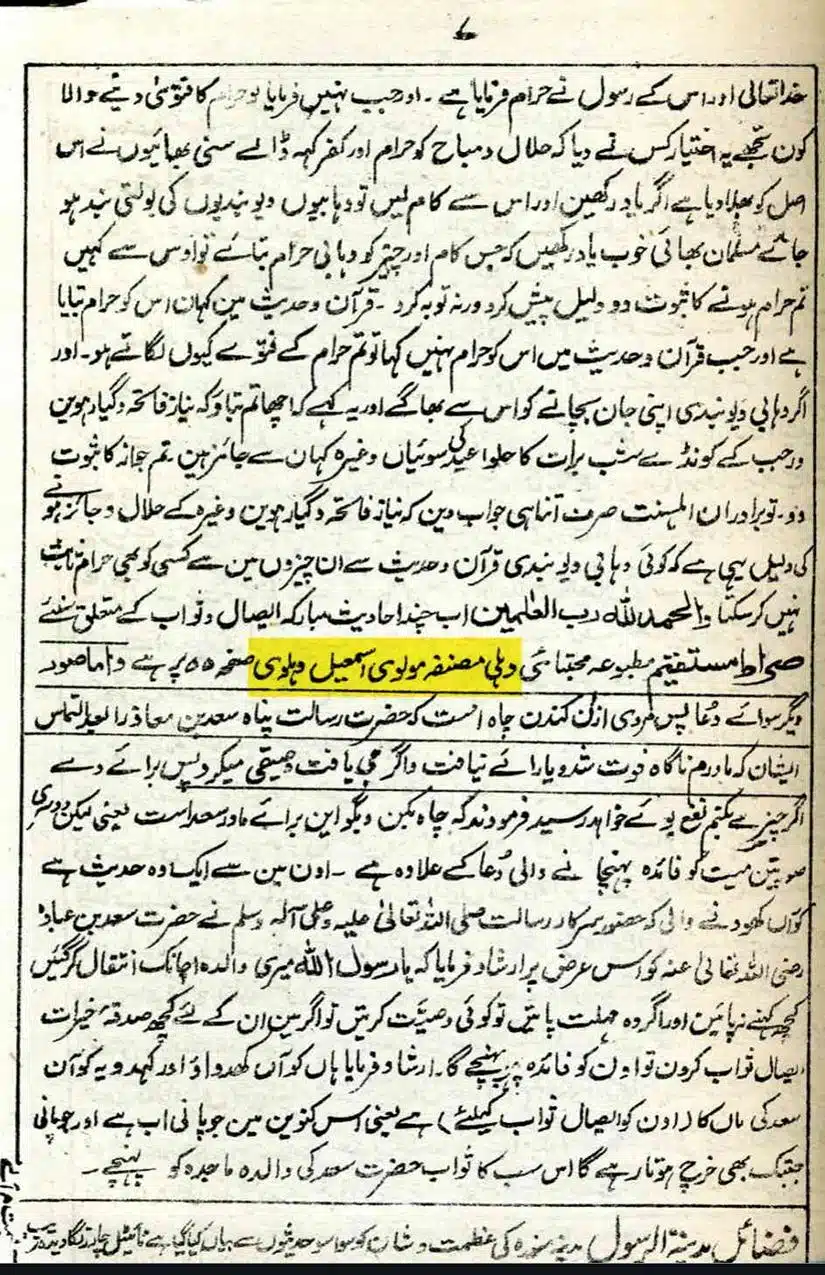 ۷
خدا تعالی اور اس کے رسول نے حرام فرمایا ہے ۔ اور جب نہیں فرمایا تو حرام کا فتویٰ دینے والا
کون تجھے یہ اختیار کس نے دیا کہ حلال و مباح کو حرام اور کفر کہہ ڈالے سنی بھائیوں نے اس
اصل کو بھلا دیا ہے اگر یاد رکھیں اور اس سے کام لیں تو وہابیوں دیوبندیوں کی بولتی بند ہو
جائے مسلمان بھائی خوب یاد رکھیں کہ جس کام اور چیز کو وہابی حرام بتائے تو اوس سے کہیں
تم حرام ہونے کا ثبوت دو دلیل پیش کرو ورنہ توبہ کرو ۔ قرآن و حدیث مین کہان اس کو حرام بتایا
ہے اور جب قرآن و حدیث میں اس کو حرام نہیں کہا تو تم حرام کے فتوے کیوں لگاتے ہو ۔ اور
اگر وہابی دیوبندی اپنی جان بچانے کو اس سے بھاگے اور یہ کہے کہ اچھا تم بتاؤ کہ نیاز فاتحہ و گیارہوین
و رجب کے کونڈے شب برات کا حلوا عید کی سوئیاں وغیرہ کہان سے جائز ہین تم جواز کا ثبوت
دو ۔ تو برادران اہلسنت صرف اتنا ہی جواب دین کہ نیاز فاتحہ و گیارہوین وغیرہ کے حلال و جائز ہونے
کی دلیل یہی ہے کہ کوئی وہابی دیوبندی قرآن و حدیث سے ان چیزوں مین سے کسی کو بھی حرام ثابت
نہیں کر سکتا والحمد للہ رب العلمین اب چند احادیث مبارکہ ایصال ثواب کے متعلق سنئے
صراط مستقیم مطبوعہ مجتبائی دہلی مصنفہ مولوی اسمعیل دہلوی صفحہ ۵۵ پر ہے و اما صور
دیگر سوائے دعا پس مروی ازان کندن چاہ است کہ حضرت رسالت پناہ سعد بن معاذ را بعد التماس
ایشان کہ مادرم ناگاہ فوت شد و یارائے نیافت و اگر می یافت وصیتی میکرد پس برائے وے
اگر چیزے بکنم نفع بوئے خواہد رسید فرمودند کہ چاہ بکن و بگو این برائے مادر سعد است یعنی لیکن دوسری
صورتین میت کو فائدہ پہنچانے والی دعا کے علاوہ ہے ۔ اون مین سے ایک وہ حدیث ہے
کوآں کھودنے والی کہ حضور سرکار رسالت صلی اللہ تعالیٰ علیہ وعلیٰ آلہ وسلم نے حضرت سعد بن عبادہ
رضی اللہ تعالیٰ عنہ کو اس عرض پر ارشاد فرمایا کہ یا رسول اللہ میری والدہ اچانک انتقال کر گئیں
کچھ کہنے نہ پائین اور اگر وہ مہلت پاتیں تو کوئی وصیت کرتیں تو اگر مین ان کے لئے کچھ صدقہ خیرات
ایصال ثواب کرون تو اون کو فائدہ پہنچے گا ۔ ارشاد فرمایا ہاں کوآں کھدواؤ اور کہدو یہ کوآن
سعد کی ماں کا (اون کو ایصال ثواب کیلئے) ہے یعنی اس کنوین مین جو پانی اب ہے اور جو پانی
جبتک بھی خرچ ہوتا رہے گا اس سب کا ثواب حضرت سعد کی والدہ ماجدہ کو پہنچے ۔
فضائل مدینۃ الرسول مدینہ منورہ کی عظمت و شان کو سوا سو حدیثوں سے بیان کیا گیا ہے